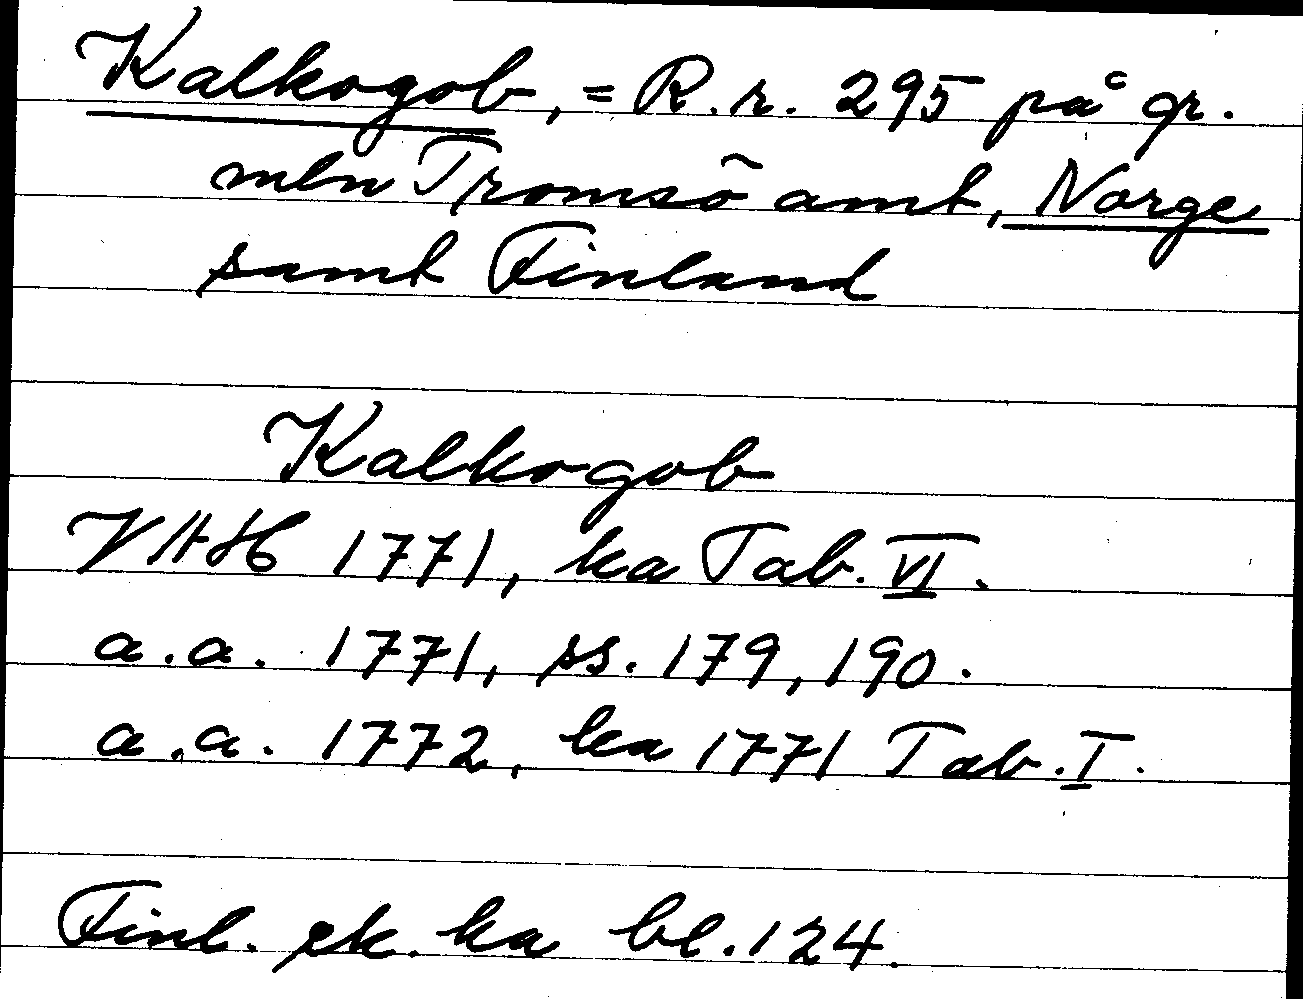 Kalkogob, = R.r. 295 på gr.
mln Tromsö amt, Norge
samt Finland
Kalkogob
VAH 1771, ka Tab. VI.
a.a. 1771, ss. 179, 190.
a.a. 1772, ka 1771 Tab. I.
Finl. ek. ka bl. 124.